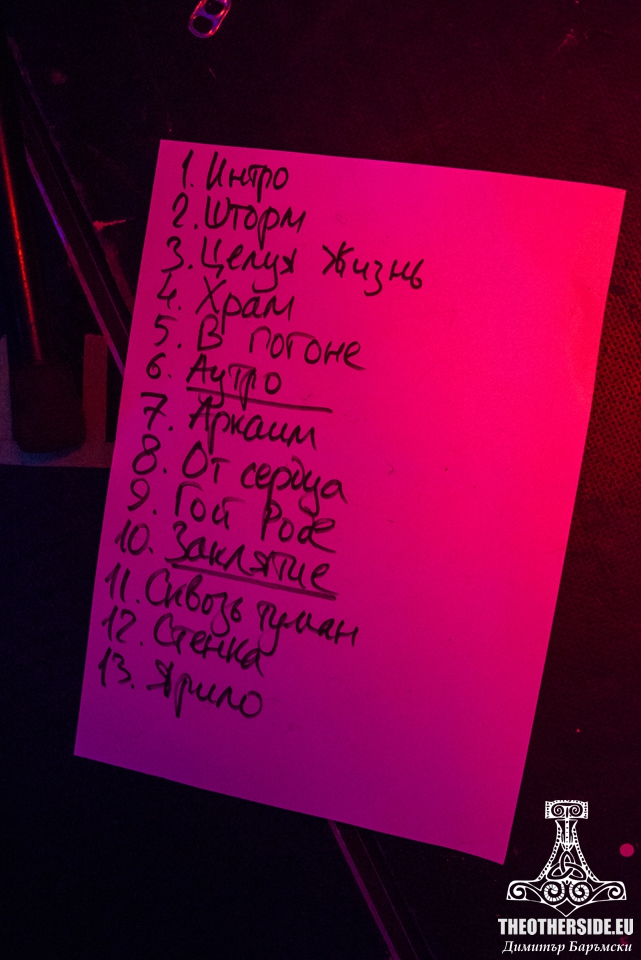 1. Интро
2. Шторм
3. Целуя Жизнь
4. Храм
5. В погоне
6. Аутро
7. Аркаим
8. От сердца
9. Гой Роде
10. Заклятие
11. Сквозь туман
12. Стенка
13. Ярило
THEOTHERSIDE.EU
Димитър Баръмски